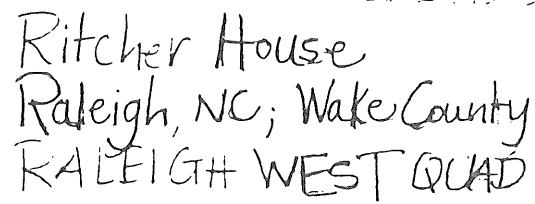 Ritcher House
Raleigh, NC; Wake County
RALEIGH WEST QUAD